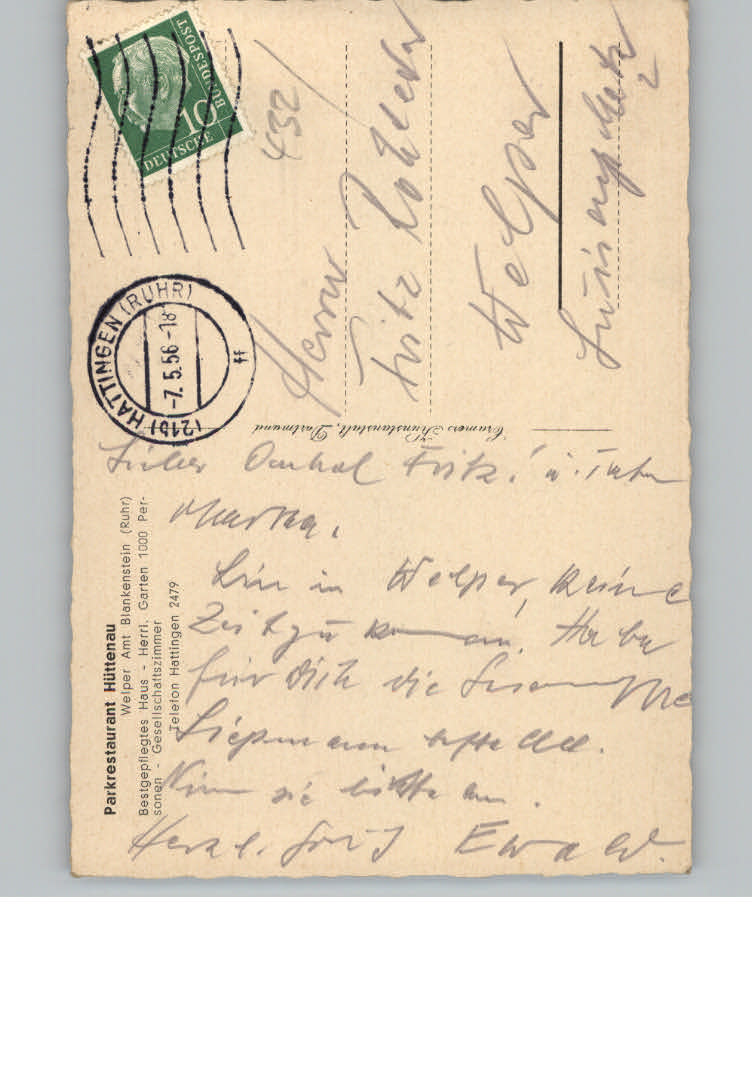 Parkrestaurant Hüttenau
Welper Amt Blankenstein (Ruhr)
Bestgepflegtes Haus - Herrl. Garten 1000 Per-
sonen - Gesellschaftszimmer
Telefon Hattingen 2479
Lieber Onkel Fritz! u. Tante
Martha,
Bin in Welper, keine
Zeit zu kommen. Habe
für Dich die
bestellt.
Nimm sie bitte an.
Herzl. Gruß Ewald.
Cramers Kunstanstalt, Dortmund
DEUTSCHE
BUNDESPOST
10
(21b) HATTINGEN (RUHR)
-7.5.56-18
ff
432
Herrn
Fritz
Welper
2